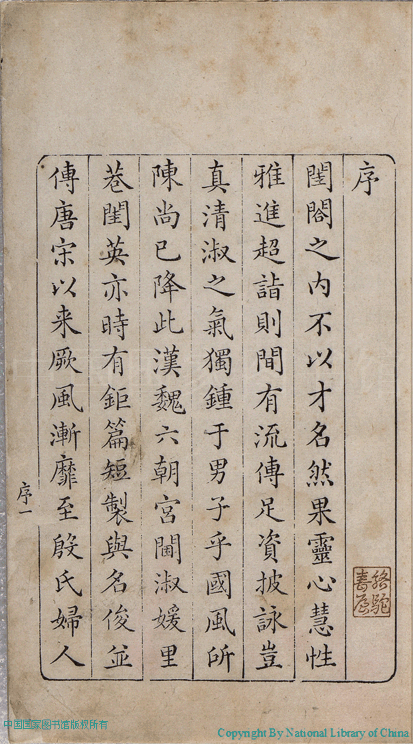 序
閨閤之内不以才名然果靈心慧性
雅進超詣則間有流傳足資披詠豈
真清淑之氣獨鍾于男子乎國風所
陳尚已降此漢魏六朝宮閫淑媛里
巷閨英亦時有鉅篇短製與名俊並
傳唐宋以来厥風漸靡至殷氏婦人
序一
中国国家图书馆版权所有
Copyright By National Library of China